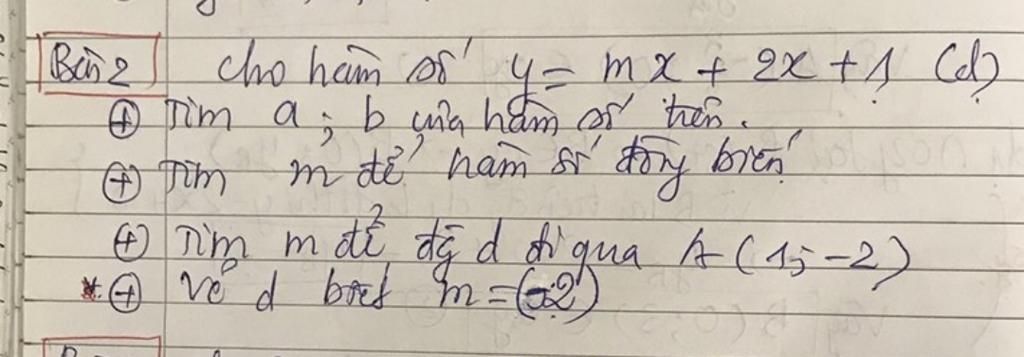 Bài 2 Cho hàm số y = mx + 2x + 1 (d)
⊕ Tìm a; b của hàm số trên.
⊕ Tìm m để hàm số đồng biến
⊕ Tìm m để đg d đi qua A (1; -2)
* ⊕ Vẽ d biết m = (-2)